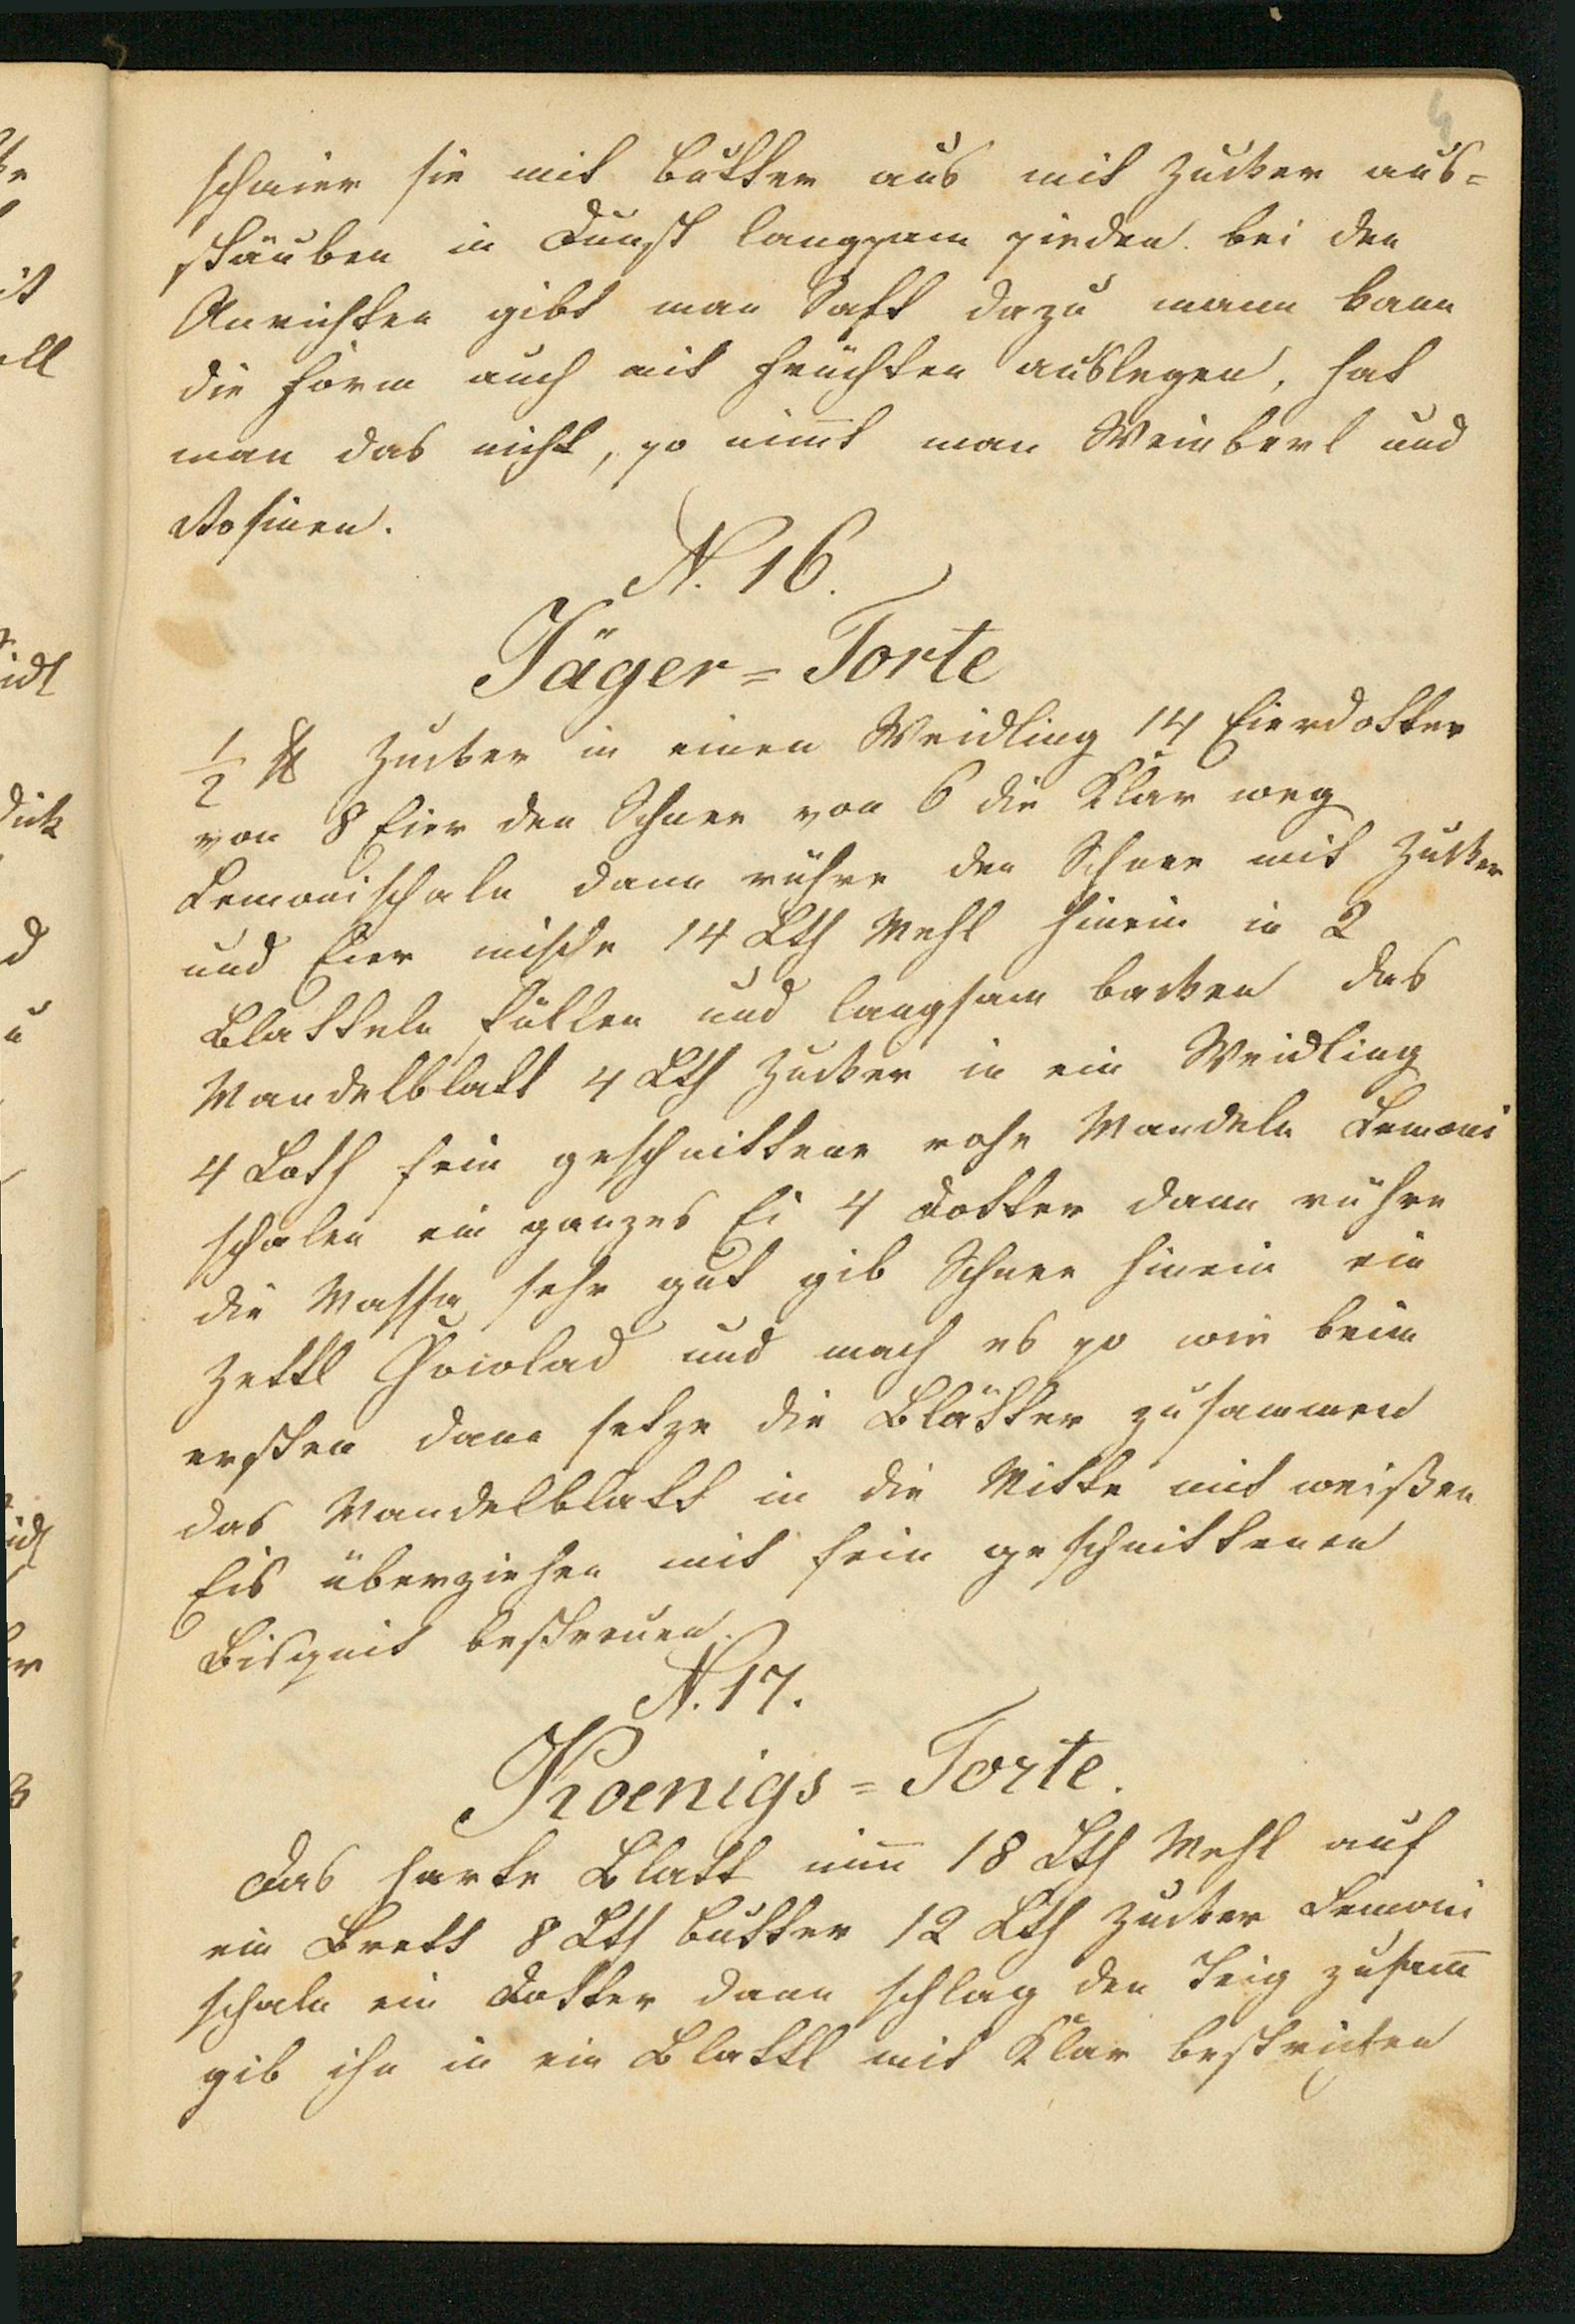 4
schmier sie mit Butter aus mit Zucker aus=
stäuben in Dunst langsam sieden. bei den
Anrichten gibt man Saft dazu mann kann
die Form auch mit Früchten auslegen, hat
man das nicht, so nim̄t man Weinberl und
Rosinen.
N. 16.
Jäger=Torte
½ ℔ Zucker in einen Weidling 14 Eierdotter
von 8 Eier den Schnee von 6 die Klar weg
Lemonischaln dann rühre den Schnee mit Zucker
und Eier mische 14 Lth Mehl hinein in 2
Blatteln füllen und langsam backen das
Mandelblatt 4 Lth Zucker in ein Weidling
4 Loth fein geschnittene rohe Mandeln Lemoni
schalen ein ganzes Ei 4 Dotter dann rühre
die Massa sehr gut gib Schnee hinein ein
Zeltl Chocolad und mach es so wie beim
ersten dann setze die Blätter zusammen
das Mandelblatt in die Mitte mit weißen
Eis überziehen mit fein geschnittenen
Bisquit bestreuen.
N. 17.
Koenigs=Torte.
Das harte Blatt nim̄ 18 Lth Mehl auf
ein Brett 8 Lth Butter 12 Lth Zucker Lemoni
schaln ein Dotter dann schlag den Teig zusam̄
gib ihn in ein Blattl mit Klar bestrichen